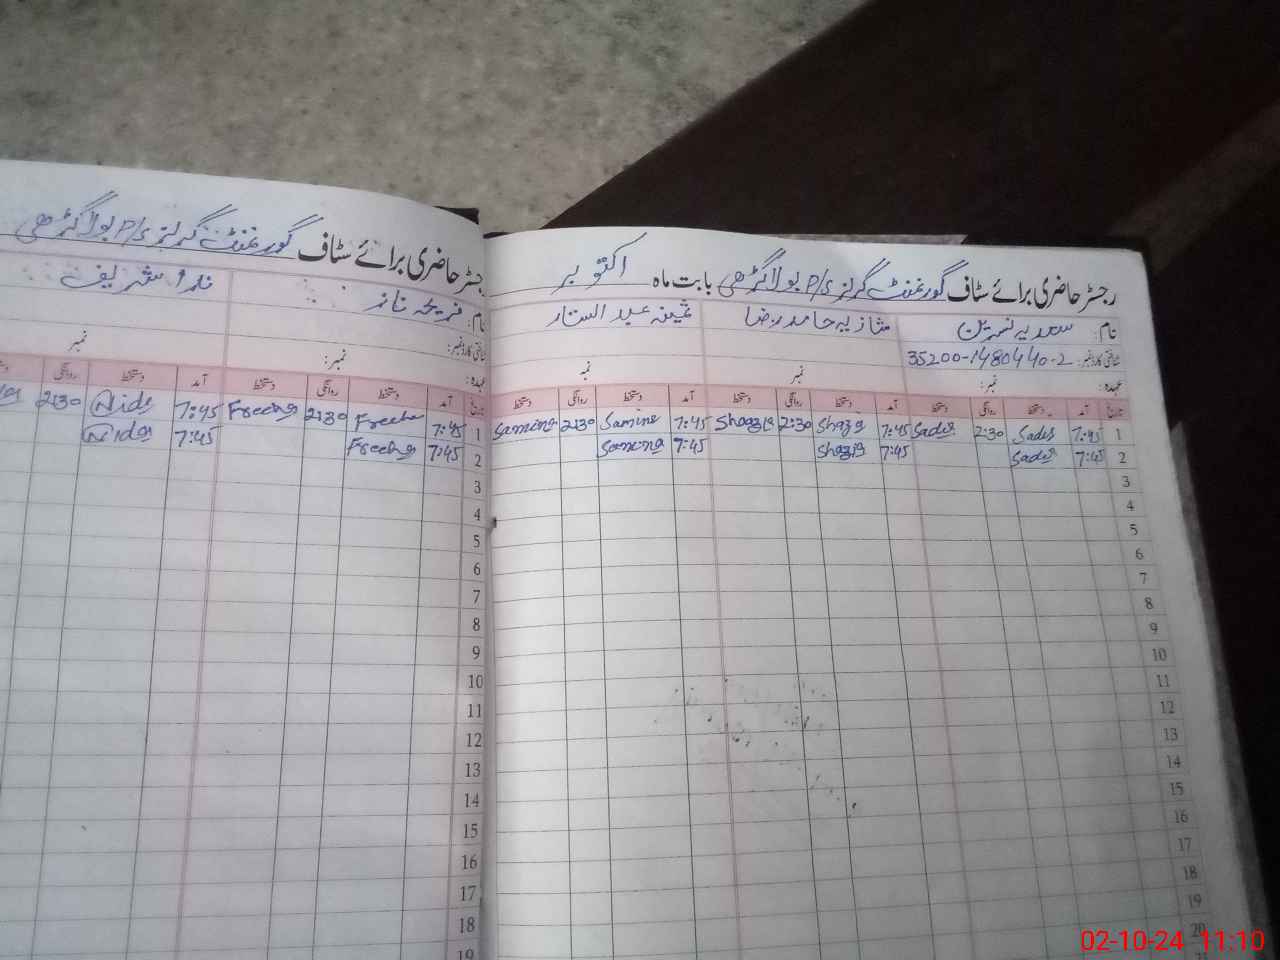 رجسٹر حاضری برائے سٹاف گورنمنٹ گرلز P/S بولا گڑھی بابت ماہ اکتوبر
نام: سعدیہ نسرین شازیہ حامد رضا ثمینہ عبد الستار
شناختی کارڈ نمبر: 35200-1480440-2
عہدہ: نمبر: نمبر نمبر
تاریخ آمد دستخط روانگی دستخط آمد دستخط روانگی دستخط آمد دستخط روانگی دستخط
1 7:45 Sadia 2:30 Sadia 7:45 Shazia 2:30 Shazia 7:45 Samina 2:30 Samina
2 7:45 Sadia 7:45 Shazia 7:45 Samina
3
4
5
6
7
8
9
10
11
12
13
14
15
16
17
18
19
20
رجسٹر حاضری برائے سٹاف گورنمنٹ گرلز P/S بولا گڑھی
نام: فریحہ ناز ندا شریف
شناختی کارڈ نمبر:
عہدہ: نمبر: نمبر
تاریخ آمد دستخط روانگی دستخط آمد دستخط روانگی
1 7:45 Freeha 2:30 Freeha 7:45 Nida 2:30
2 7:45 Freeha 7:45 Nida
3
4
5
6
7
8
9
10
11
12
13
14
15
16
17
18
19
02-10-24 11:10